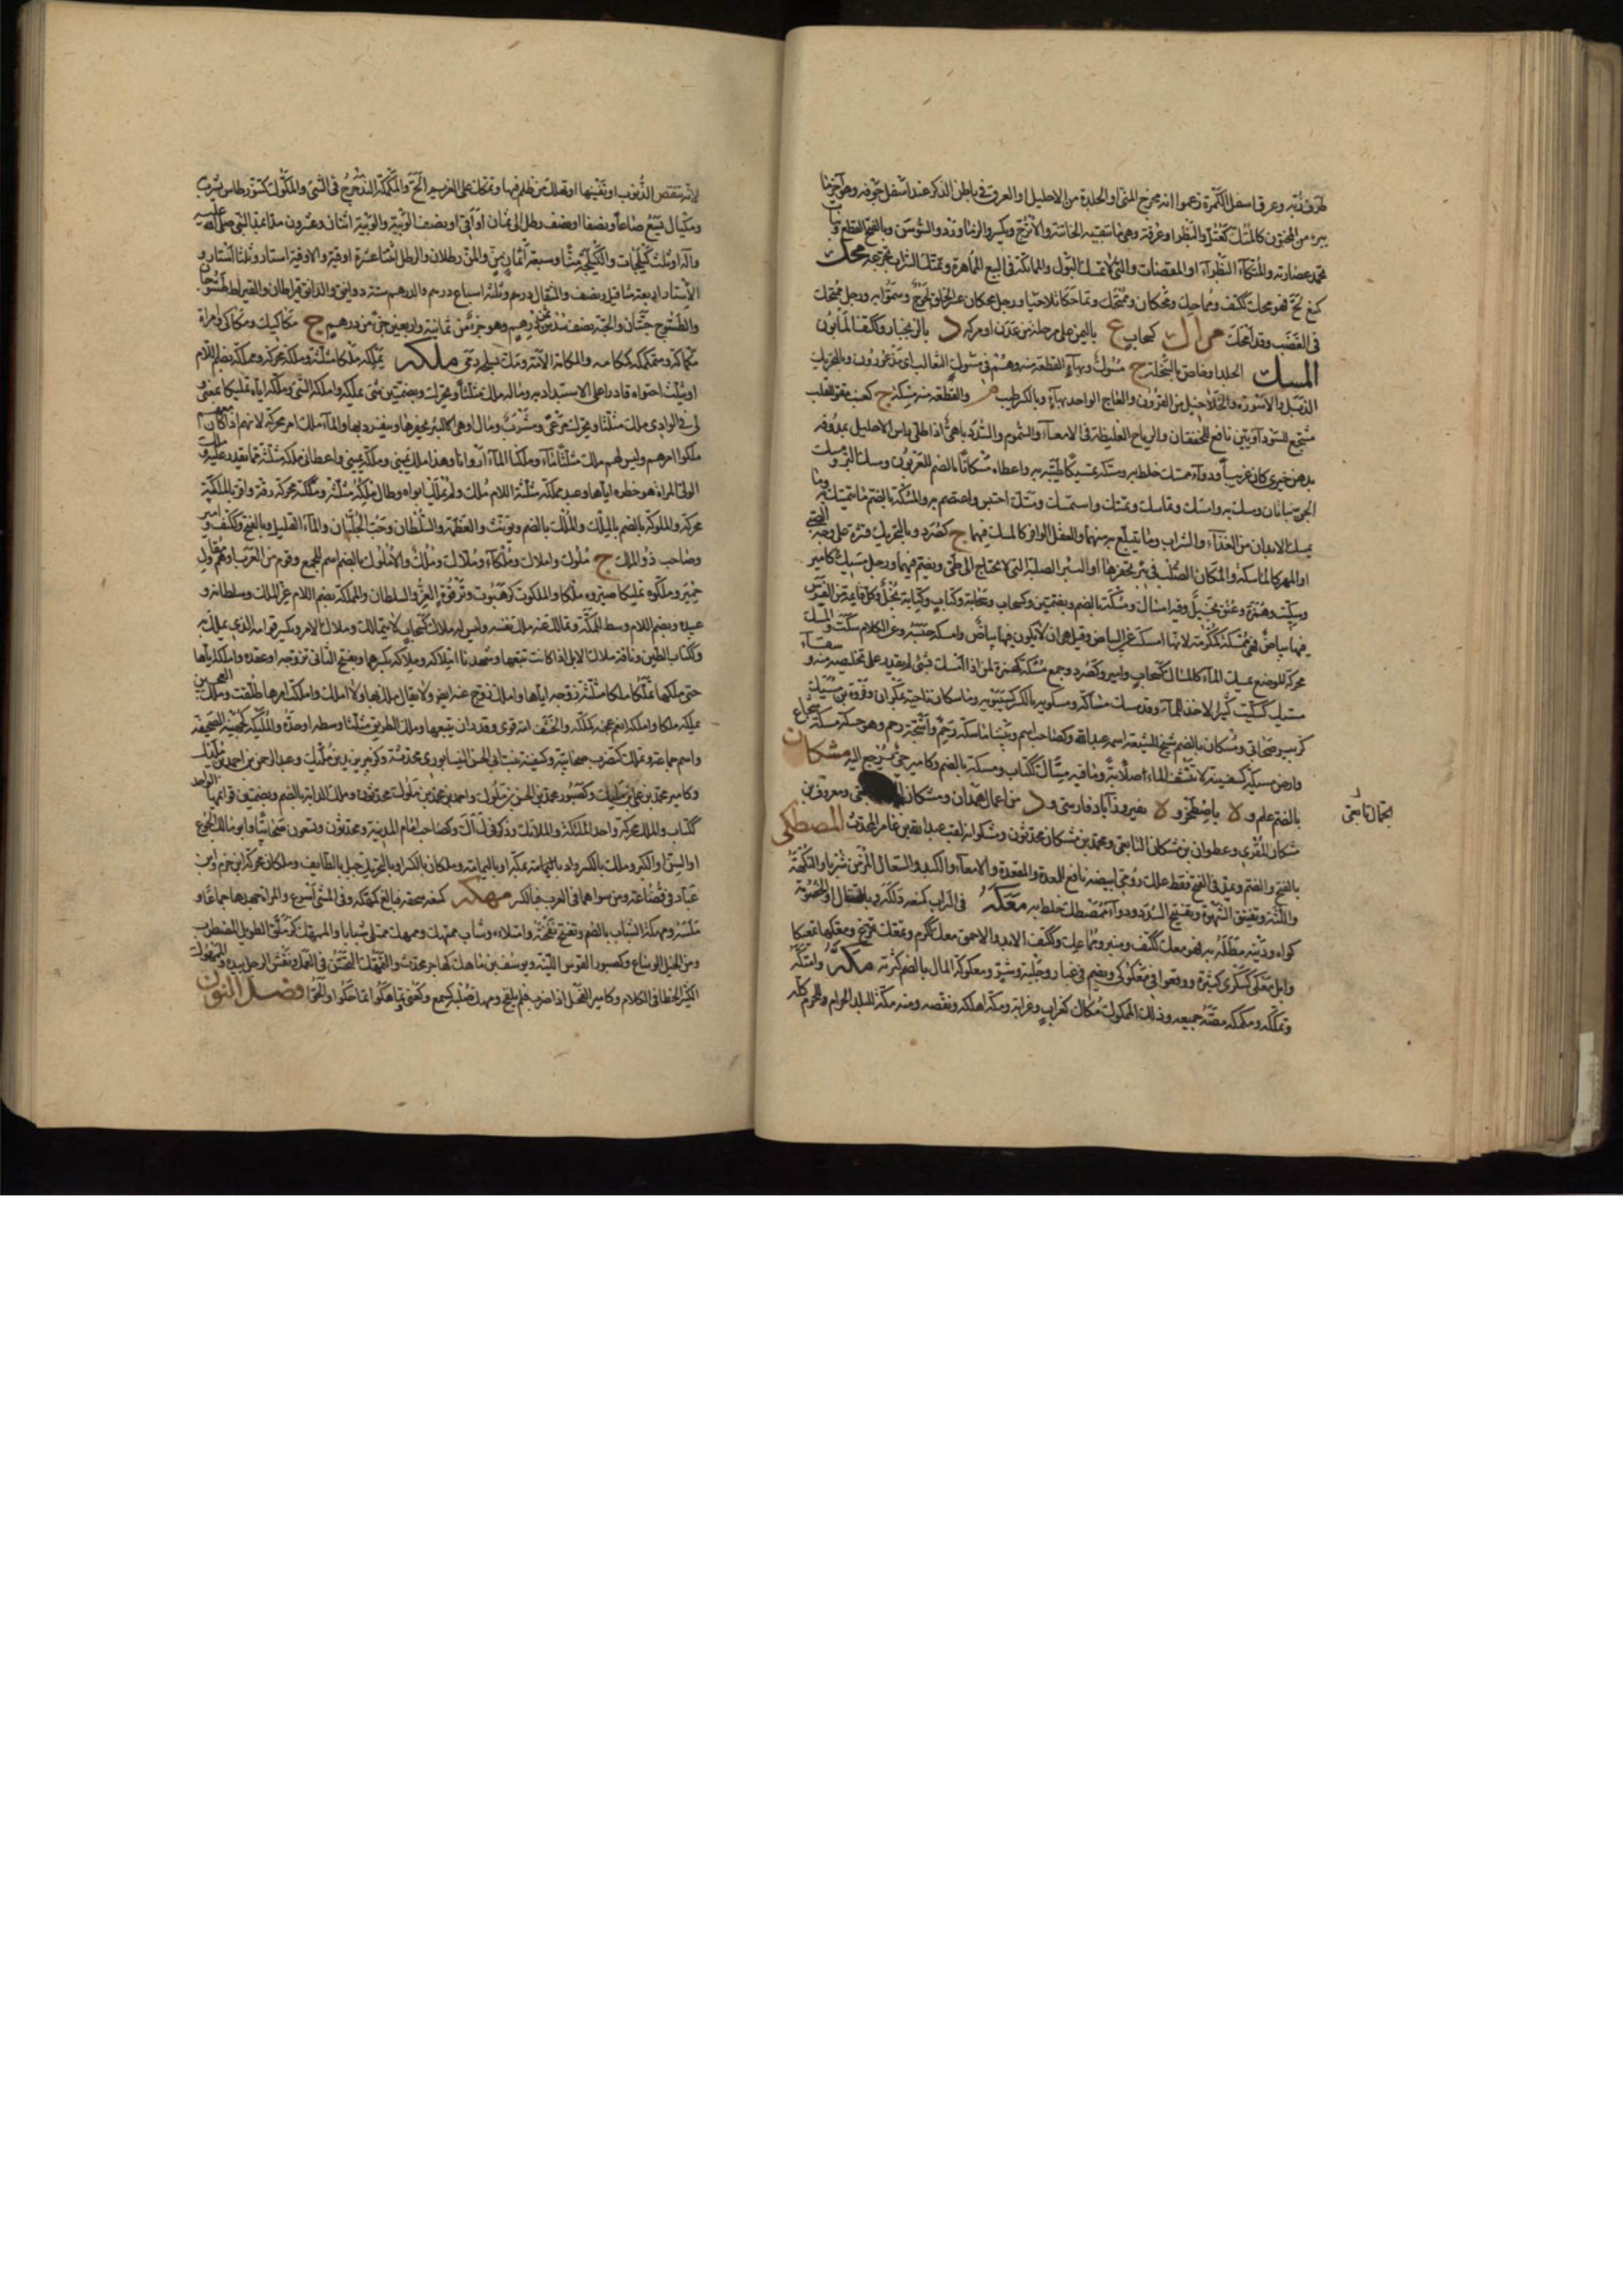 طرف زبه وعرق اسفل الكمرة زعموا انه مخرج المني او الجلدة من الاحليل او العرق في باطن الذكر عند اسفل حوقه وهو آخر ما
يبرء من المختون كالمتك كعتل والبظر او عرقه وهي ما تبقيه الخاتنة والاترج ويكسر والزماورد والسوسن وبالفتح القطع ونبات
تجمد عصارته والمتكاء البظراء او المفضاة والتي لا تمسك البول والمماتكة في البيع المماهرة وتمتك الشراب تجرعه محك
كمنع لج فهو محك ككتف ومماحك ومحكان وممتحك وتماحكا تلاحيا ورجل محكان عسر الخلق لجوج وسموا به ورجل ممتحك
في الغضب وقد امحك مرال كسحاب ع باليمن على مرحلة من عدن او مركه د بالزنجبار وككتف المأبون
المسك الجلد او خاص بالسخلة ج مسوك وبهاء القطعة منه وهم في مسوك الثعالب اي مذعورون وبالتحريك
الذبل والاسورة والخلاخيل من القرون والعاج الواحد بهاء وبالكسر طيب م والقطعة منه مسكة ج كعنب مقو للقلب
مشجع للسوداويين نافع للخفقان والرياح الغليظة في الامعاء والسموم والسدد باهي اذا طلي راس الاحليل بمدوفه
بدهن خيري كان غريبا ودواء ممسك خلط به ومسكه تمسيكا طيبه به واعطاه مسكانا بالضم للعربون ومسك البر ومسك
الجن نباتان ومسك به وامسك وتماسك وتمسك واستمسك ومسك احتبس واعتصم به والمسكة بالضم ما يتمسك به وما
يمسك الابدان من الغذاء والشراب وما يتبلغ به منهما والعقل الوافر كالمسك فيهما ج كصرد وبالتحريك قشرة على وجه الصبي
او المهر كالماسكة والمكان الصلب في بئر تحفرها او البئر الصلبة التي لا تحتاج الى طي ويضم فيهما ورجل مسيك كامير
وسكيت وهمزة وعنق بخيل وفيه امساك ومسكة بالضم وبضمتين وكسحاب وسحابة وكتاب وكتابة بخل وكل قايمة من الفرس
فيها بياض فهي ممسكة كمكرمة لانها امسكت على البياض وقيل هي ان لا يكون فيها بياض وامسكه حبسه وعن الكلام سكت والمسك
محركة الموضع يمسك الماء كالمساك كسحاب وامير وكصرد وجمع مسكة كهمزة لمن اذا امسك بشئ لم يقدر على تخليصه منه وسقاء
مسيك كسكيت كثير الاخذ للماء وقد مسك مساكة ومسكويه بالكسر كسيبويه وماسكان ناحية بمكران وفروة بن مسيك
كزبير صحابي ومسكان بالضم شيخ للشيعة اسمه عبدالله وكصاحب اسم وبيننا ماسكة رحم واشجة رحم وهو حسكة مسكة شجاع
وارض مسيكة كسفينة لا تنشف الماء صلابة وما فيه مساك ككتاب ومسكة بالضم وكامير خير يرجع اليه مشكان
بالضم علم و لا باصطخر و لا بفيروزآباد فارس و د من اعمال همدان ومشكان ومعروف بن
الجمال تابعي
مشكان المقري وعطوان بن مشكان التابعي ومحمد بن مشكان محدثون ومشكوانه لقب عبدالله بن عامر المحدث المصطكى
بالفتح والضم ويمد في الفتح فقط علك رومي ابيضه نافع للمعدة والمقعدة والامعاء والكبد والسعال المزمن شربا والنكهة
واللثة وتفتيق الشهوة وتفتيح السدد ودواء ممصطك خلط به معكه في التراب كمنعه دلكه و بالقتال والخصومة
لواه ودينه مطله به فهو معك ككتف ومنبر ومماعك وككتف الالد والاحمق معك ككرم وتمعك تمرغ ومعكها تمعيكا
وابل معكى كسكرى كثيرة ووقعوا في معكوكى ويضم في غبار وجلبة وشر ومعكوكة المال بالضم كثرته مكه وامتكه
وتمككه ومكمكه مصه جميعه وذلك الممكوك مكاك كغراب وغرابة ومكه اهلكه ونقصه ومنه مكة للبلد الحرام وللحرم كله
لانها تنقص الذنوب او تفنيها او تهلك من ظلم فيها وتمكك على الغريم الح والمكمكة التدحرج في المشي والمكوك كتنور طاس يشرب به
ومكيال يسع صاعا ونصفا او نصف رطل الى ثمان اواقي او نصف الويبة والويبة اثنان وعشرون مدا بمد النبي صلى الله عليه
وآله او ثلث كيلجات والكيلجة منا وسبعة اثمان من والمن رطلان والرطل اثنتا عشرة اوقية والاوقية استار وثلثا استار و
الاستار اربعة مثاقيل ونصف والمثقال درهم وثلثة اسباع درهم والدرهم ستة دوانق والدانق قيراطان والقيراط طسوجان
والطسوج حبتان والحبة نصف ثمن درهم وهو جزء من ثمانية واربعين جزءا من درهم ج مكاكيك ومكاكي وامراة
مكماكة ومتمكمكة كمكامة والمكانة الامة ومك بسلحه رمى ملكه يملكه ملكا مثلثة وملكة محركة ومملكة بضم اللام
او يثلث احتواه قادرا على الاستبداد به وماله ملك مثلثا ويحرك وبضمتين شئ يملكه واملكه الشئ وملكه اياه تمليكا بمعنى و
لي في الوادي ملك مثلثا ويحرك مرعى ومشرب ومال او هي البئر يحفرها وينفرد بها والماء ملك امر محركة لانهم اذا كان معهم ماء
ملكوا امرهم وليس لهم ملك مثلثا ماء وملكنا الماء اروانا وهذا ملك يميني وملكة يميني واعطاني ملكه مثلثة مما يقدر عليه وملك
الولي المراة هو حظره اياها وعبد مملكة مثلثة اللام ملك ولم يملك ابواه وطال ملكه مثلثة وملكته محركة رقه واقر بالملكة
محركة والملوكة بالضم بالملك والملك بالضم ويونث والعظمة والسلطان وحب الجلبان والماء القليل وبالفتح وككتف وامير
وصاحب ذو الملك ج ملوك واملاك وملكاء وملاك وملك والاملوك بالضم اسم للجمع وقوم من العرب او مقاول
حمير وملكوه تمليكا صيروه ملكا والملكوت كرهبوت وترقوة العز والسلطان والمملكة بضم اللام عز الملك وسلطانه و
عبيده وبضم اللام وسط المملكة وتمالك عنه ملك نفسه وليس له ملاك كسحاب لا يتمالك وملاك الامر ويكسر قوامه الذي يملك به
وككتاب الطين وناقة ملاك الابل اذا كانت تتبعها وشهدنا املاكه وملاكه بكسرهما وبفتح الثاني تزوجه او عقده واملكه اياها
حتى ملكها يملكها ملكا مثلثة زوجه اياها واملك زوج عنه ايضا ولا يقال ملك بها ولا املك واملكت امرها طلقت وملك العجين
يملكه ملكا واملكه انعم عجنه كملكه والخشف امه قوي وقدر ان يتبعها وملك الطريق مثلثا وسطه او حده والمليكة كجهينة الصحيفة
واسم جماعة وتملك كتضرب صحابية وكسفينة بنت ابي الحسن النيسابوري محدثة وكزبير يزيد بن مليك وعبدالرحمن بن احمد بن مليك
وكامير محمد بن علي بن مليك وكصبور محمد بن الحسن بن ملوك واحمد بن محمد بن ملوك محدثون وملك الدابة بالضم وبضمتين قوائمها الواحد
ككتاب والملك محركة واحد الملائكة والملائك وذكر في ل أ ك وكصاحب امام المدينة ومحدثون وتسعون صحابيا وابو مالك الجوع
او السن او الكبر وملك بالكسر واد بمكة او باليمامة وملكان بالكسر او بالتحريك جبل بالطايف وملكان محركة ابن جرم وابن
عباد في قضاعة ومن سواهما في العرب فبالكسر مهكه كمنعه سحقه فبالغ كمهكه وفي المشي اسرع والمراة جهدها جماعا و
ملسه ومهكة الشباب بالضم وتفتح نفخته وامتلاءه وشاب ممتهك وممهك ممتلئ شبابا والممهك كمدلك الطويل المضطرب
ومن الخيل الوساع وكصبور القوس اللينة ويوسف بن ماهك كهاجر محدث والتمهك التحسن في العمل ونفش الرجل بيده والممهوك
الكثير الخطا في الكلام وكامير الفحل اذا ضرب فلم يلقح ومهك صلبه كسمع وكعني وتماهكوا تماحكوا ولجوا فصل النون